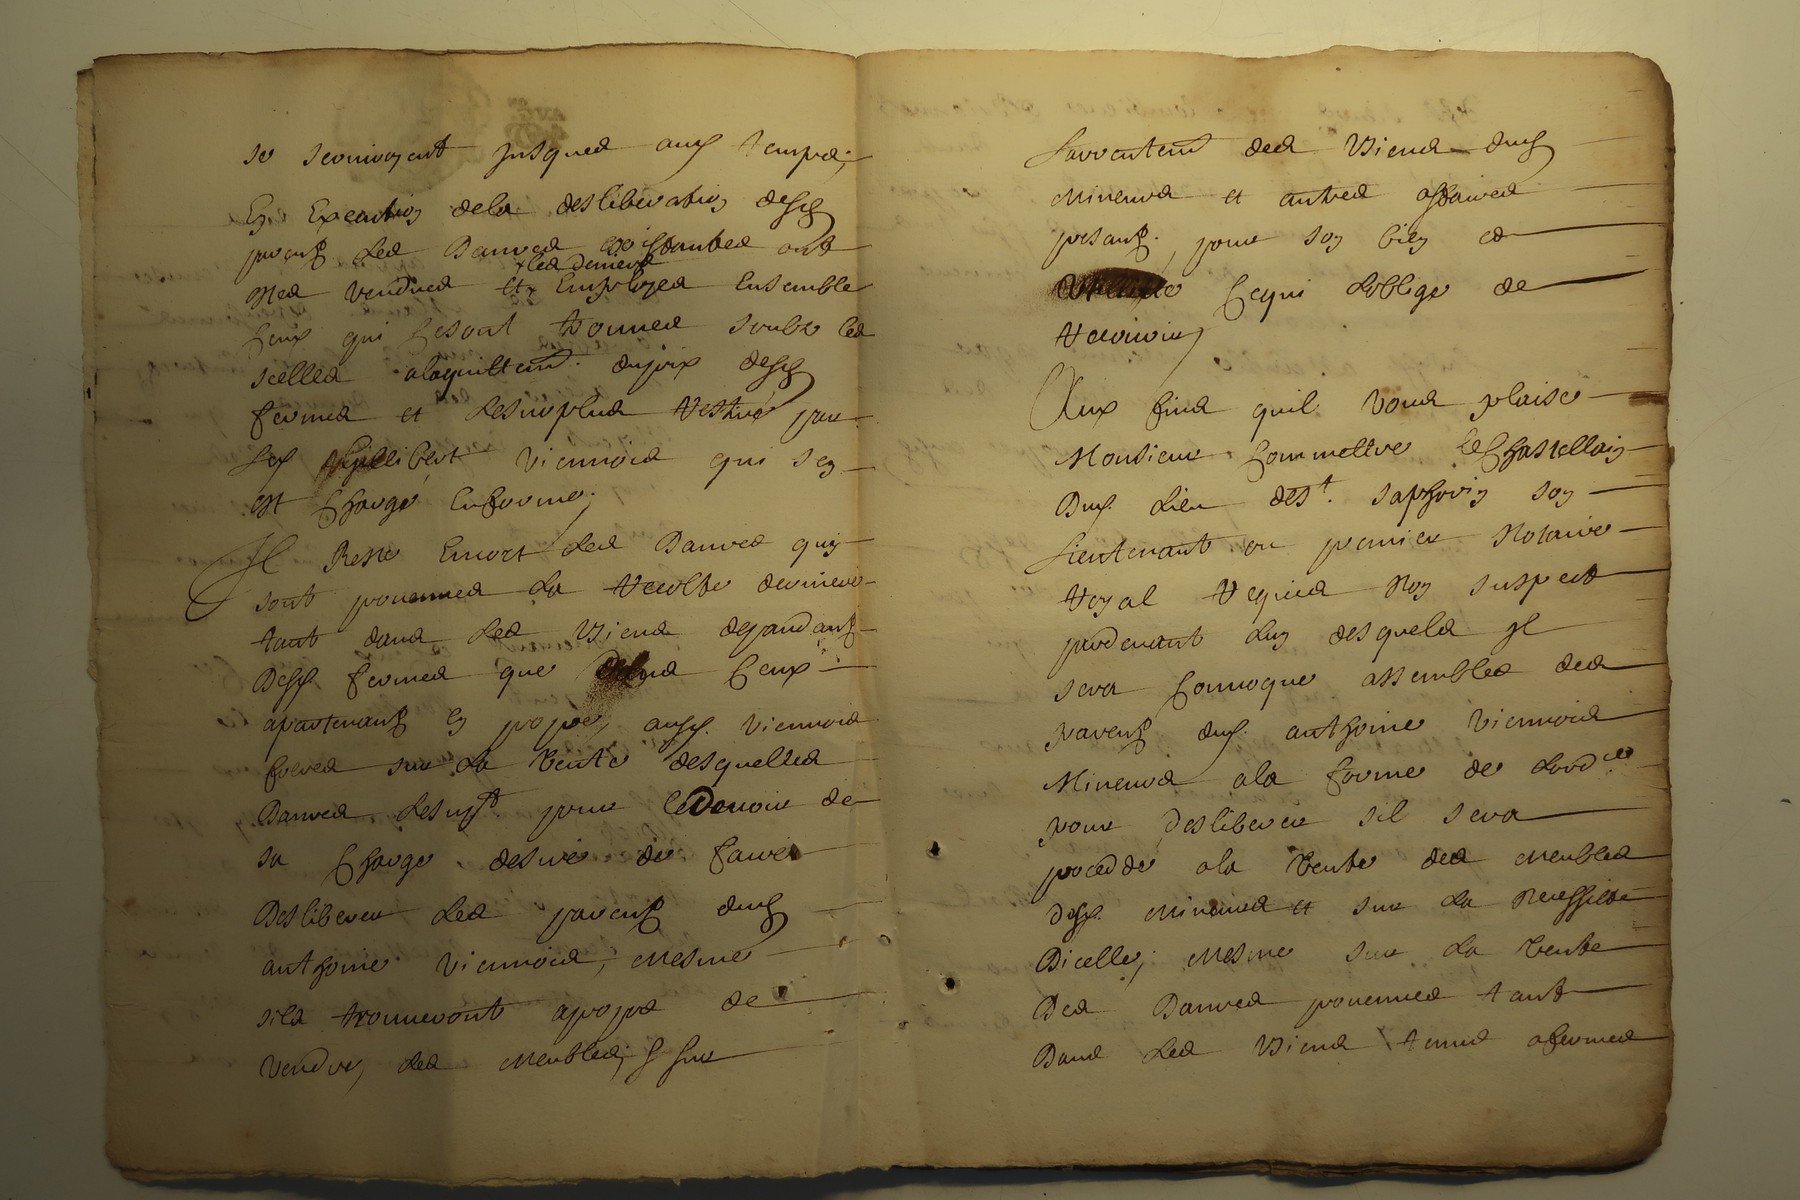 se renvoyent jusques aux temps;
En Execution dela desliberation desd
parents Les Danrés existantes ont
estés vendues et Employés Ensemble
les deniers
Ceux qui se sont trouués soubs les
scellés alaquittemt. du prix desd
fermes et Lesurplus restné par
Led phillibert Viennois qui sen
est Chargé Enforme;
Il Reste Encor Les Danrés quy
sont prouenues La recolte derniere
tant dans Les Biens depandants
Desd fermes que dans Ceux
apartenants En propre, ausd. Viennois
freres sur La Vente desquelles
Danrés Lesupt. pour le Deuoir de
sa Charge desire de faire
Desliberer Les parents dud
anthoine Viennois, mesme
sils trouueront apropos de
Vendre, Les Meubles, & sur
Larrentemt des Biens dud
Mineurs et autres affaires
presants. pour son bien et
Ce qui Loblige de
recourir
Aux fins quil Vous plaise
Monsieur Commettre le Chastellain
Dud. Lieu de St. saphorin son
Lieutenant ou premier Notaire
royal requis Non suspect
pardeuant Luy desquels Il
sera Conuoqué assemblée des
parents dud. anthoine Viennois
Mineurs ala forme de Lordce
pour desliberer sil sera
procedde ala Vente des Meubles
desd. Mineurs et sur La Necessité
Dicelle, mesme sur La Vente
Des Danrés prouenues tant
Dans Les Biens tenus afermes